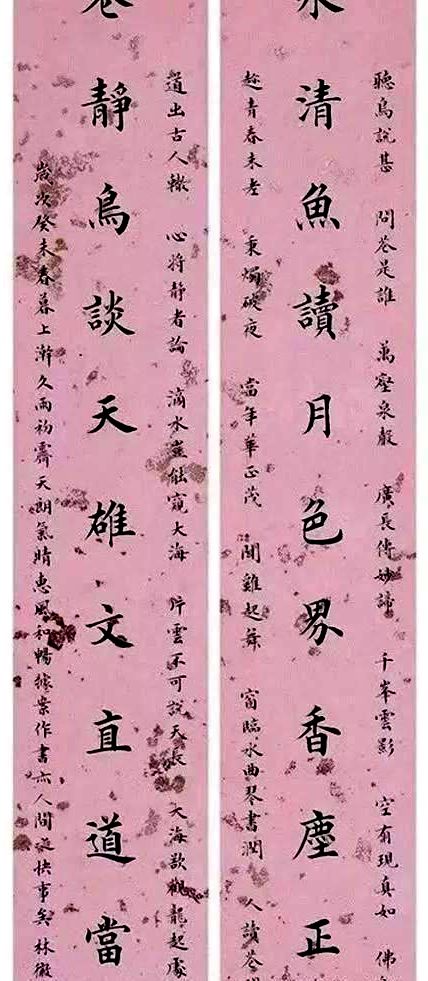 聽鳥說甚 問花是誰 萬壑泉聲 廣長傳妙諦 千峯雲影 空有現真如 佛
水清魚讀月色界香塵正
趁青春未老 秉燭破夜 當年華正茂 聞雞起舞 窗臨水曲琴書潤 人讀花
道出古人轍 心將静者論 滴水豈能窺大海 片雲不可說天長 大海欲觀龍起處
靜鳥談天雄文直道當
歲次癸未春暮上澣久雨初霽天朗氣晴惠風和暢據案作書亦人間快事矣 林